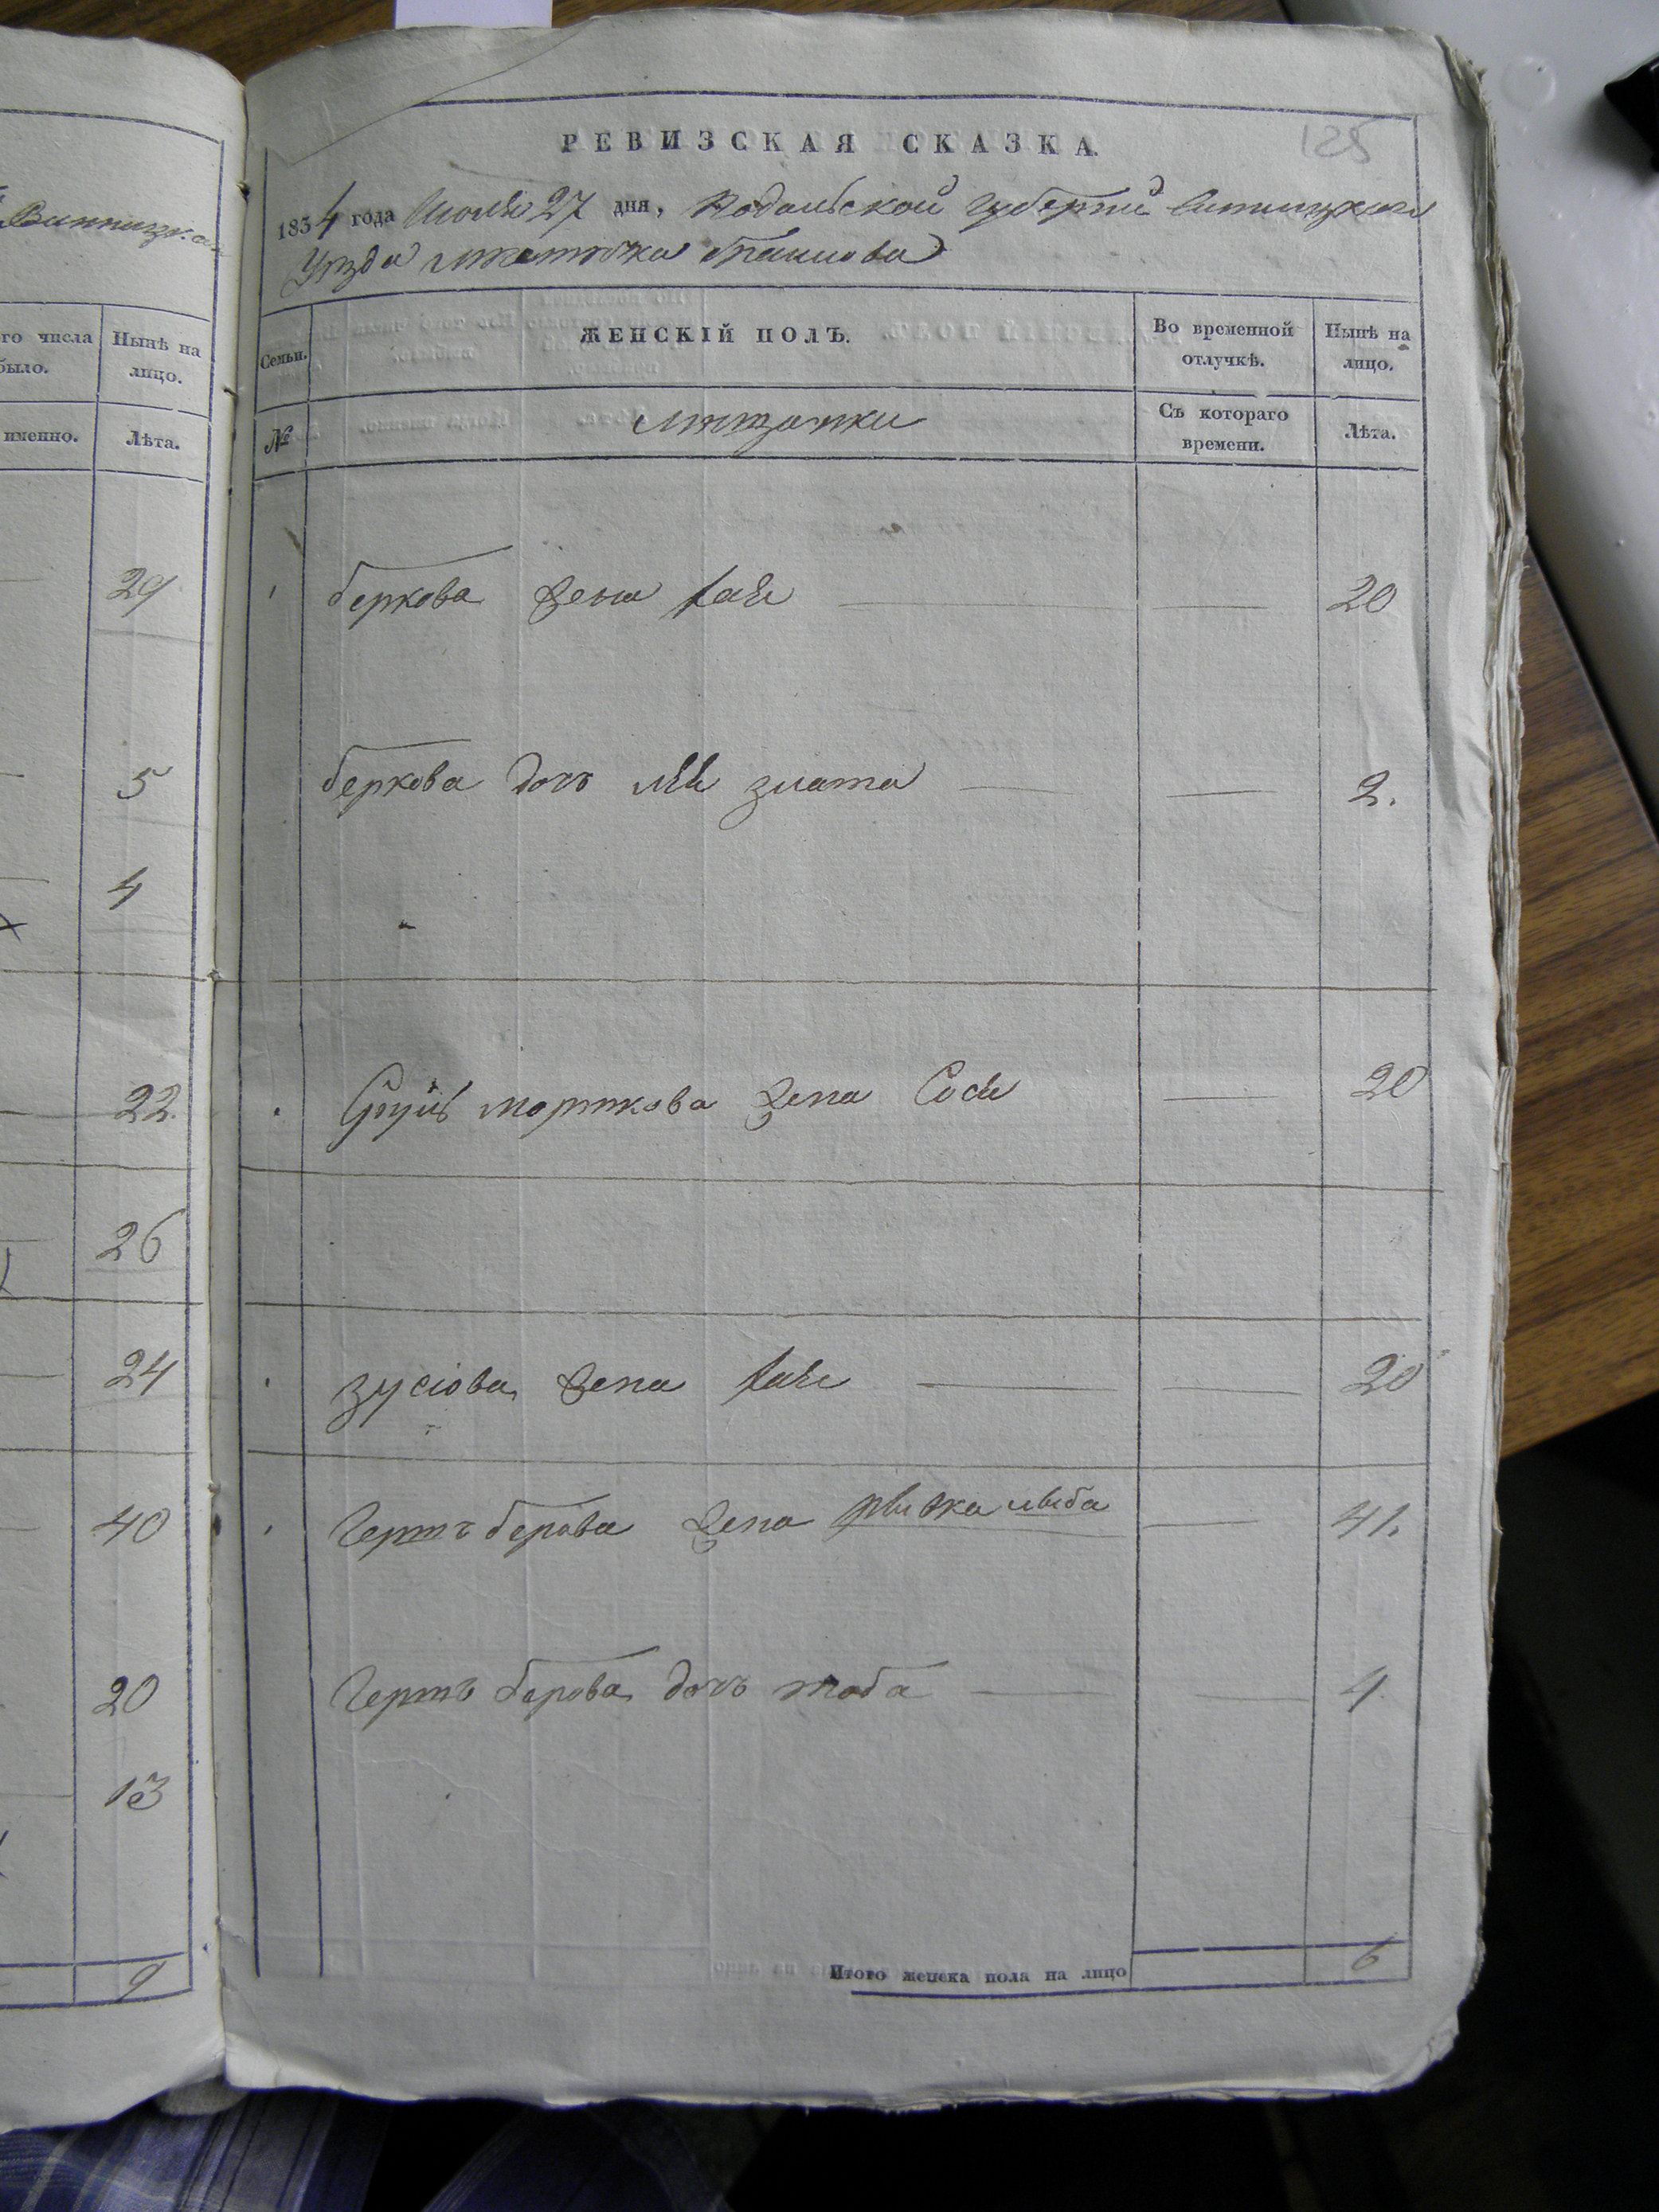 Винницка
го числа
было.
Нынѣ на
лицо.
именно.
Лѣта.
29
5
4
22
26
24
40
20
13
9
РЕВИЗСКАЯ СКАЗКА.
125
1834 года Июля 27 дня, Подольской губернїи Винницкаго
Уѣзда мѣстечка Браилова
Семьи.
ЖЕНСКІЙ ПОЛЪ.
Во временной
отлучкѣ.
Нынѣ на
лицо.
№
мѣщанки
Съ котораго
времени.
Лѣта.
беркова жена хая 20
беркова дочь злата 2.
морткова жена Сося 20
зусіова жена хая 20
Гершъ берова жена рывка 41.
Гершъ берова дочь тоба 4
Итого женска пола на лицо 6